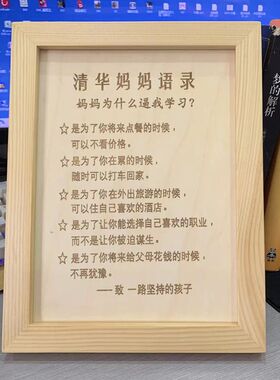 清华妈妈语录
妈妈为什么逼我学习?
☆是为了你将来点餐的时候,
可以不看价格。
☆是为了你在累的时候,
随时可以打车回家。
☆是为了你在外出旅游的时候,
可以住自己喜欢的酒店。
☆是为了让你能选择自己喜欢的职业,
而不是让你被迫谋生。
☆是为了你将来给父母花钱的时候,
不再犹豫。
——致 一路坚持的孩子
梦的解析